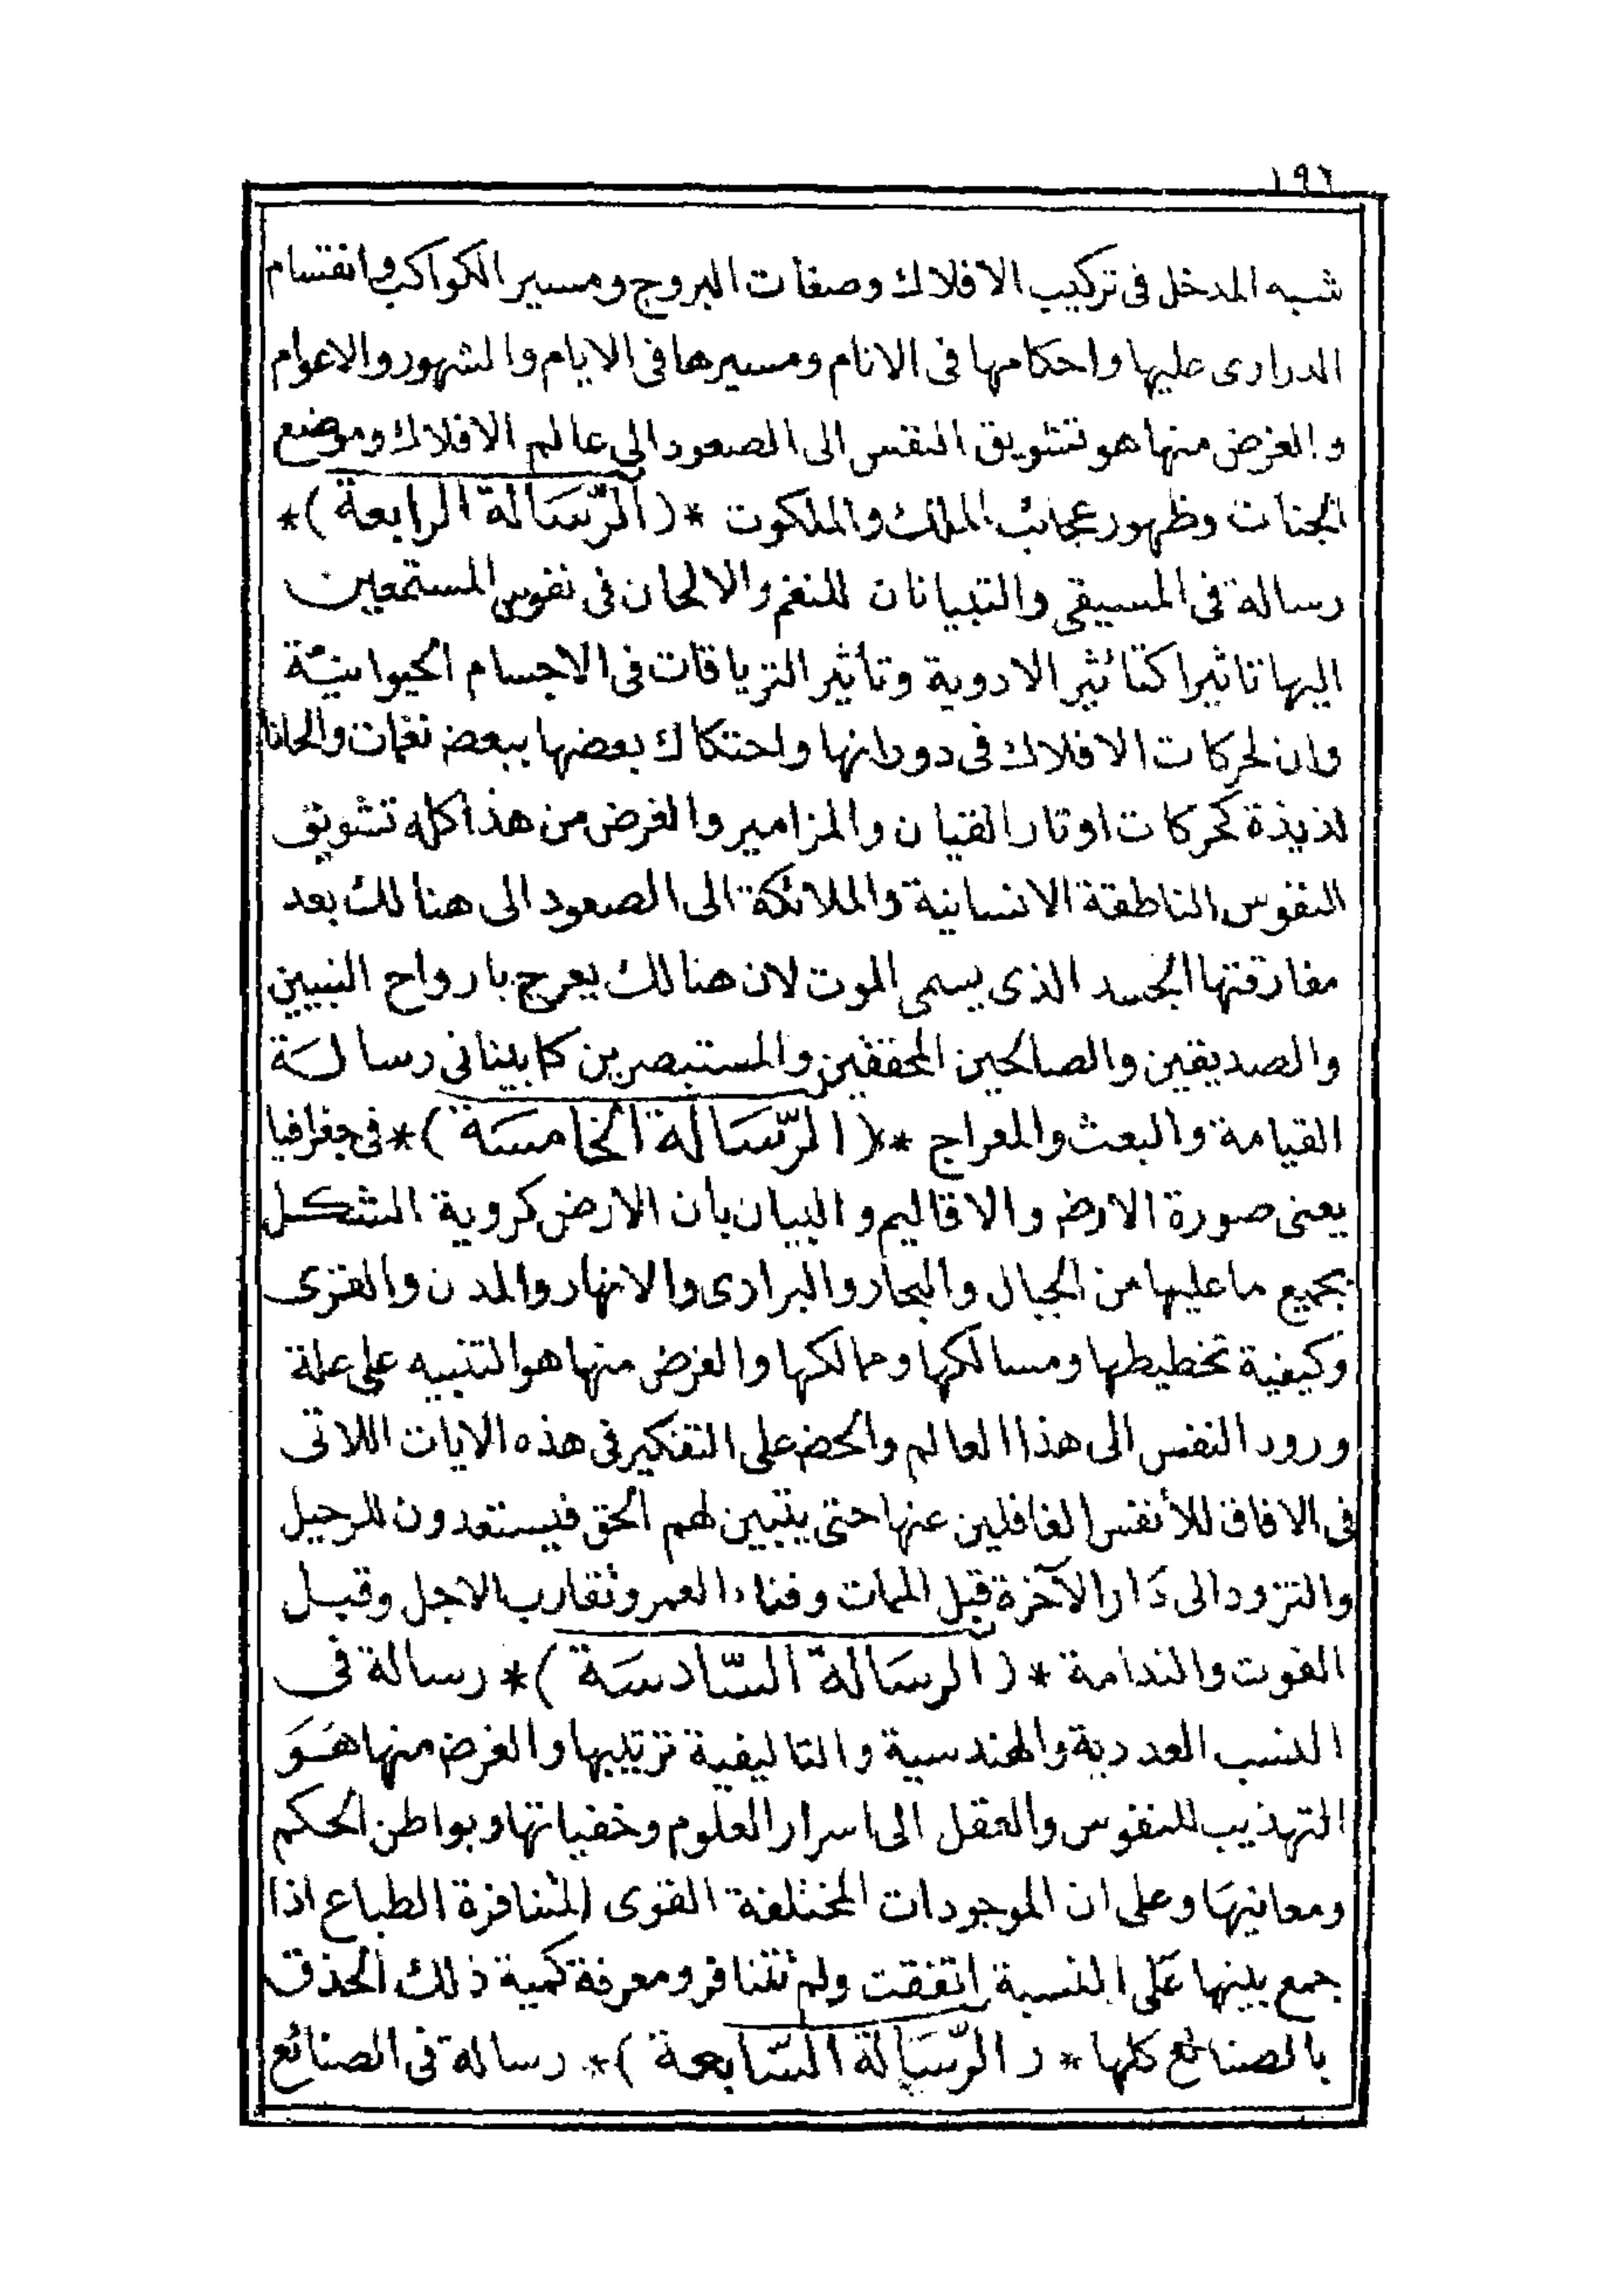 ١٩٦
شبه المدخل فى تركيب الافلاك وصفات البروج ومسير الكواكب وانقسام
الدرارى عليها واحكامها فى الانام ومسيرها فى الايام والشهور والاعوام
والغرض منها هو تشويق النفس الى الصعود الى عالم الافلاك وموضع
الجنات وظهور عجائب الملك والملكوت *(الرّسَالة الرابعة)*
رسالة فى المسيقى والتبيانات للنغم والالحان فى نفوس المستمعين
اليها تاثيرا كتأثير الادوية وتأثير الترياقات فى الاجسام الحيوانيّة
وان لحركات الافلاك فى دورانها واحتكاك بعضها ببعض نغمات والحانا
لذيذة كحركات اوتار القيان والمزامير والغرض من هذا كله تشويق
النفوس الناطقة الانسانية والملائكة الى الصعود الى هنالك بعد
مفارقتها الجسد الذى يسمى الموت لان هنالك يعرج بارواح النبيين
والصديقين والصالحين المحققين والمستبصرين كما بينا فى رسالَة
القيامة والبعث والمعراج *(الرّسَالة الخامسَة)* فى جغرافيا
يعنى صورة الارض والاقاليم والبيان بأن الارض كروية الشكل
بجميع ما عليها من الجبال والبحار والبرارى والانهار والمدن والقرى
وكيفية تخطيطها ومسالكها وممالكها والغرض منها هو التنبيه على علة
ورود النفس الى هذا العالم والحض على التفكير فى هذه الايات اللاتى
فى الافاق للأنفس الغافلين عنها حتى يتبين لهم الحق فيستعدون للرحيل
والتزود الى دَار الآخرة قبل الممات وفناء العمر وتقارب الاجل وقبل
الفوت والندامة *(الرسَالة السّادسَة)* رسالة فى
النسب العددية والهندسية والتاليفية ترتيبها والغرض منها هُوَ
التهذيب للنفوس والعقل الى اسرار العلوم وخفياتها وبواطن الحكم
ومعانيهَا وعلى ان الموجودات المختلفة القوى المتنافرة الطباع اذا
جمع بينها عَلى النسبة اتفقت ولم تتنافر ومعرفة كمية ذلك الحذق
بالصنائع كلها *(الرّسَالة السّابعة)* رسالة فى الصنائع